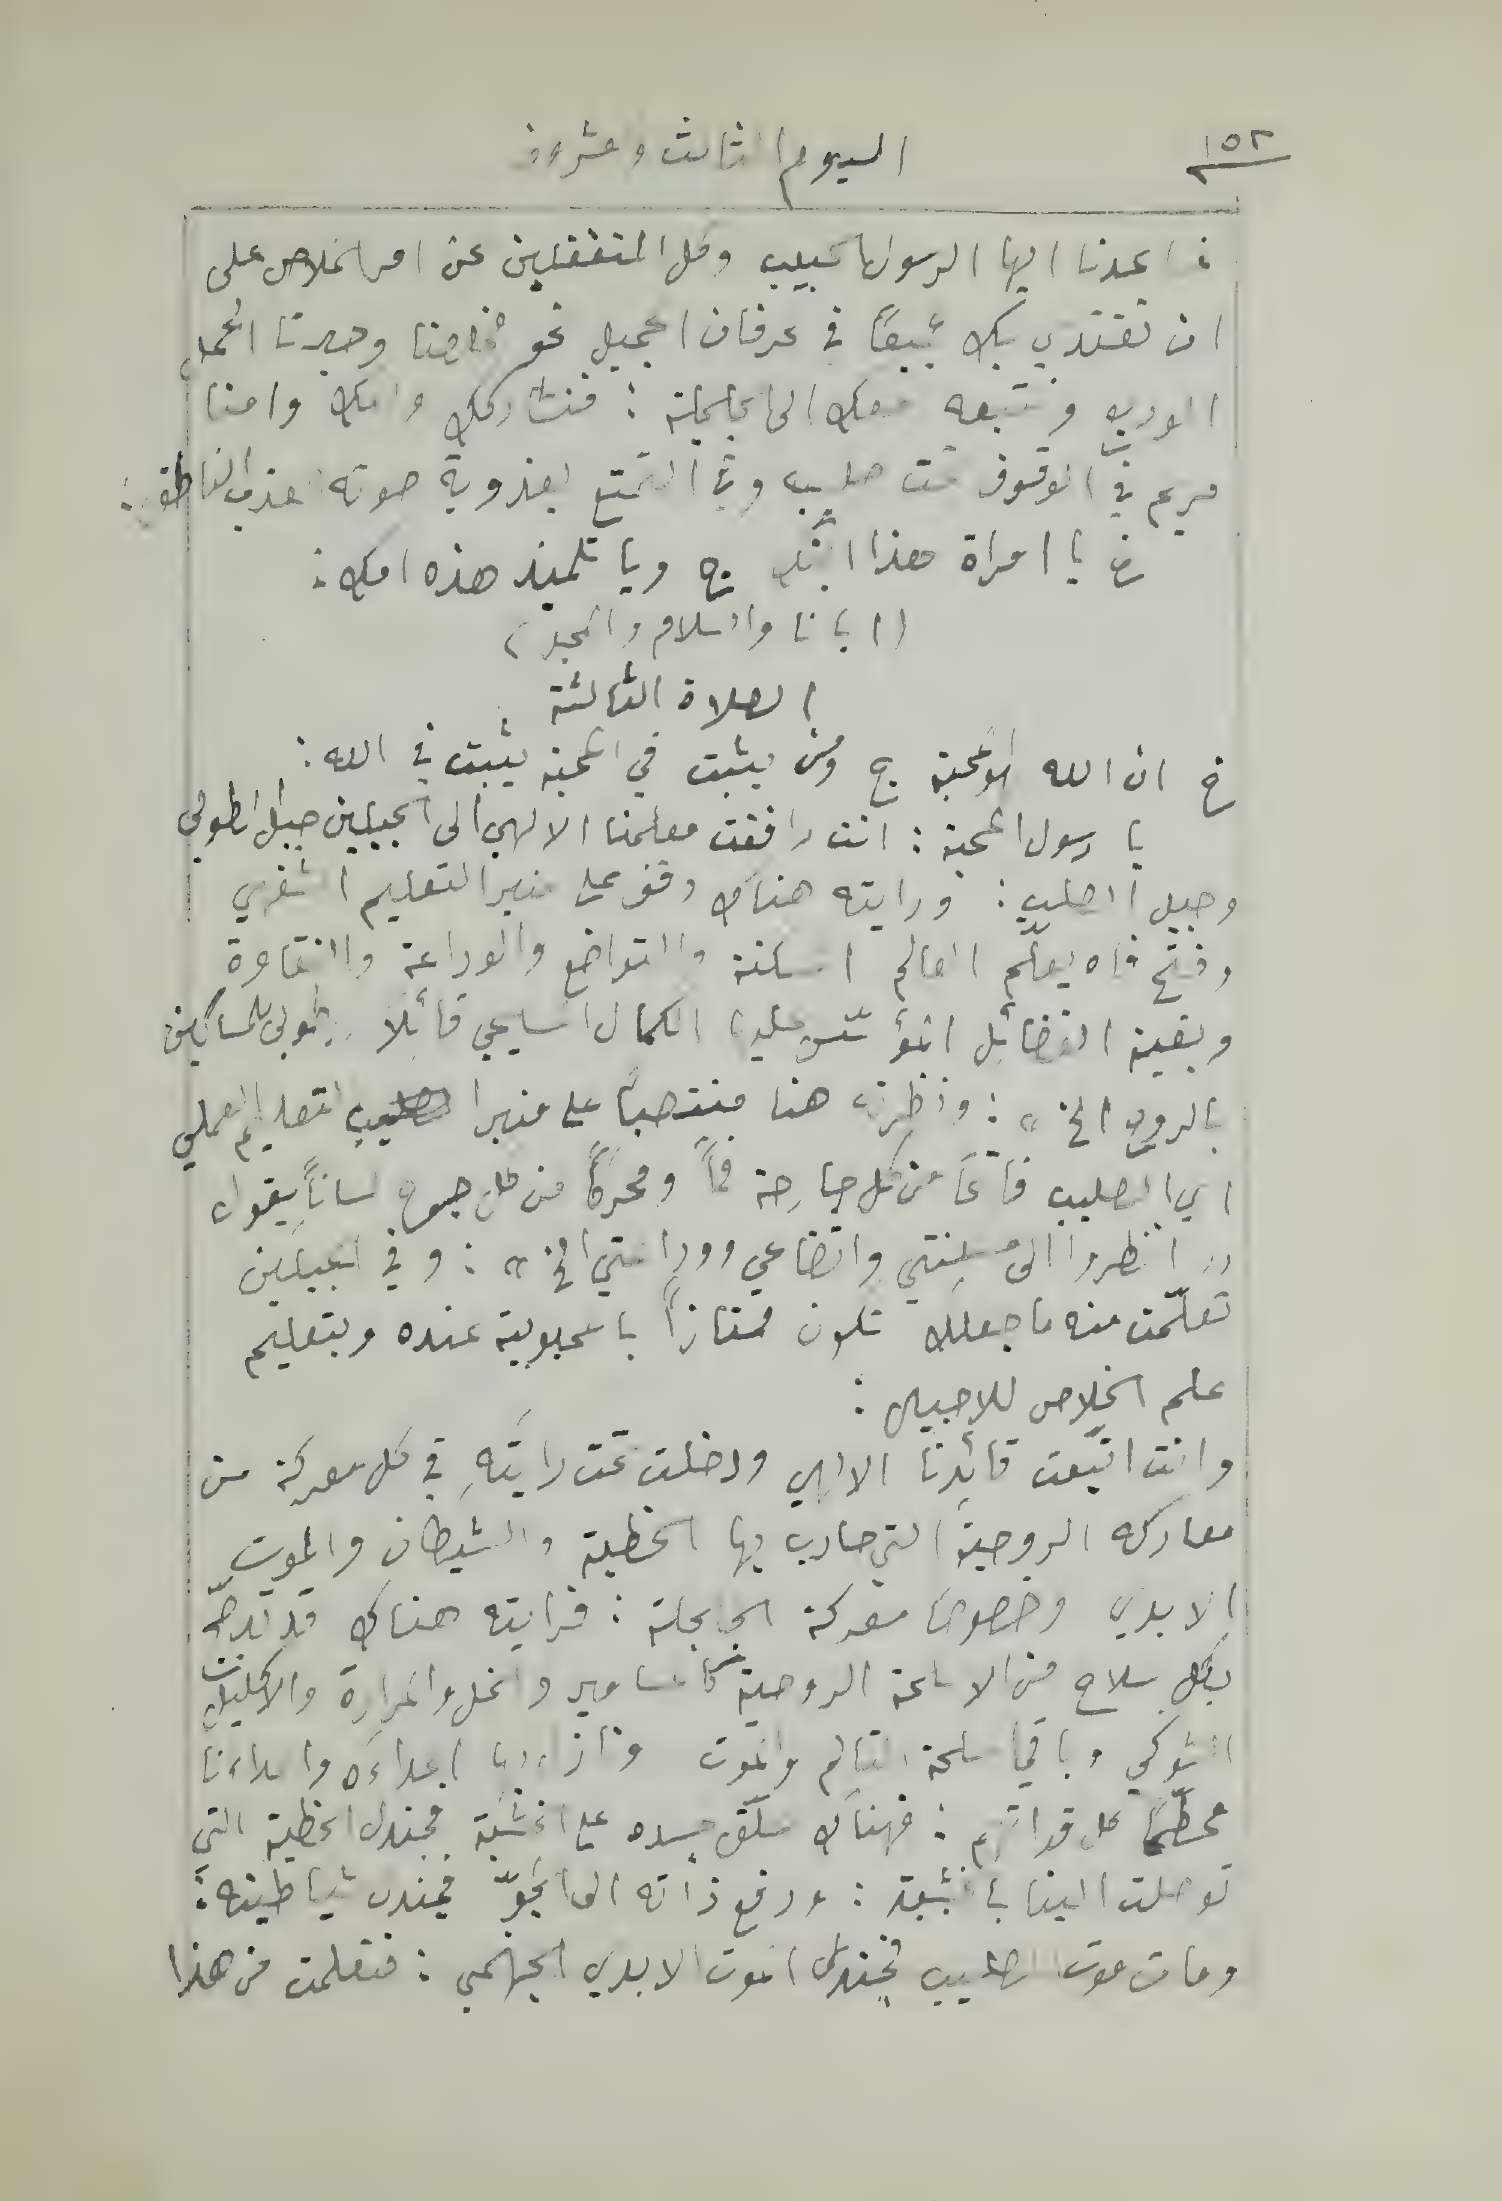 ١٥٢
اليوم الثالث وعشرون
فساعدنا ايها الرسول الحبيب وكل المتغفلين عن امر الخلاص على
ان نقتدي بك جميعًا في عرفان الجميل نحو مخلصنا وحبرنا الحمل
الوديع ونتبعه معك الى الجلجلة : فنشاركك وامك وامنا
مريم في الوقوف تحت صليبه وفي التمتع بعذوبة صوته العذب الناطق :
خ يا امراة هذا ابنك ج ويا تلميذ هذه امك :
(ابانا والسلام والمجد)
الصلاة الثالثة
خ ان الله هو محبة ج ومن يثبت في المحبة يثبت في الله :
يا رسول المحبة : انت رافقت معلمنا الالهي الى الجبلين جبل الطوبى
وجبل الصلب : ورايته هناك وقف على منبر التعليم الشفهي
وفتح فاه يعلّم العالم المسكنة والتواضع والوداعة والنقاوة
وبقية الفضائل المؤسّس عليها الكمال المسيحي قائلا طوبى للمساكين
بالروح الخ » : ونظرته هنا منتصبًا على منبر التعليم العملي
اي الصليب فاتحًا من كل جارحة فمًا ومحركًا من كل جرح لسانًا يقول
« انظروا الى مسكنتي واتضاعي ووداعتي الخ » : وفي الجبلين
تعلّمت منه ما جعلك تكون ممتازًا بالمحبوبية عنده وبتعليم
علم الخلاص للاجيال :
وانت اتبعت قائدنا الالهي ودخلت تحت رايَتَهِ في كل معركة من
معاركه الروحية التي حارب بها الخطية والشيطان والموت
الابدي وخصوصًا معركة الجلجلة : فرايته هناك قد تدجج
بكل سلاح من الاسلحة الروحية كالمسامير والخل والمرارة والاكليل
الشوكي وباقي اسلحة التالم والموت ونازل بها اعداءَه واعداءنا
محطّمًا كل قواتهم : فهناك علّق جسده على الخشبة فجندل الخطية التي
توصلت الينا بالخشبة : ورفع ذاته الى الجوّ فجندل شياطينه :
ومات موت الصليب فجندل الموت الابدي الجهنمي : فتعلمت من هذا